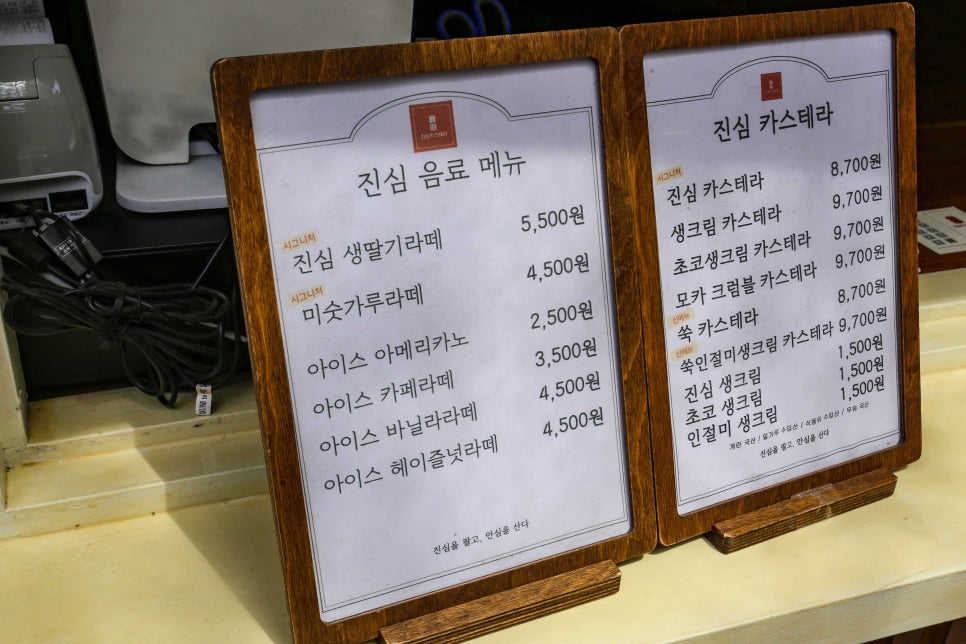 진심카스테라
진심 음료 메뉴
시그니처
진심 생딸기라떼 5,500원
시그니처
미숫가루라떼 4,500원
아이스 아메리카노 2,500원
아이스 카페라떼 3,500원
아이스 바닐라라떼 4,500원
아이스 헤이즐넛라떼 4,500원
진심을 팔고, 안심을 산다
진심 카스테라
시그니처
진심 카스테라 8,700원
생크림 카스테라 9,700원
초코생크림 카스테라 9,700원
모카 크럼블 카스테라 9,700원
신메뉴
쑥 카스테라 8,700원
신메뉴
쑥인절미생크림 카스테라 9,700원
진심 생크림 1,500원
초코 생크림 1,500원
인절미 생크림 1,500원
계란 국산 / 밀가루 수입산 / 식용유 수입산 / 우유 국산
진심을 팔고, 안심을 산다